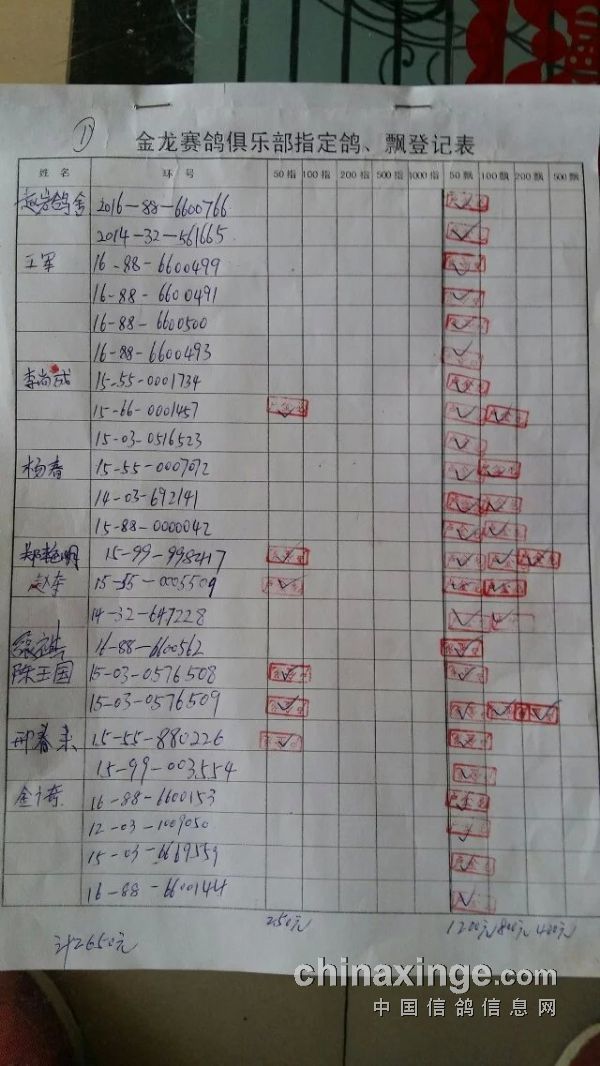 ①
金龙赛鸽俱乐部指定鸽、飘登记表
姓名 环号 50指 100指 200指 500指 1000指 50飘 100飘 200飘 500飘
赵岩鸽舍 2016-88-6600766 ✓
2014-32-561665 ✓
王军 16-88-6600499 ✓
16-88-6600491 ✓
16-88-6600500 ✓
16-88-6600493 ✓
李尚成 15-55-0001734 ✓
15-66-0001457 ✓ ✓ ✓
15-03-0516523 ✓
杨春 15-55-0007072 ✓ ✓
14-03-692141 ✓ ✓
15-88-0000042 ✓ ✓
郑艳明 15-99-998417 ✓ ✓ ✓ ✓
赵奎 15-55-0005509 ✓ ✓ ✓
14-32-647228 ✓ ✓
16-88-6600562 ✓
陈玉国 15-03-0576508 ✓ ✓
15-03-0576509 ✓ ✓ ✓ ✓
邢春来 15-55-880226 ✓ ✓
15-99-003554 ✓
16-88-6600153 ✓
12-03-1009050 ✓
15-03-6669559 ✓
16-88-6600144 ✓
250元 1200元 800元 400元
计2650元
chinaxinge.com
中国信鸽信息网